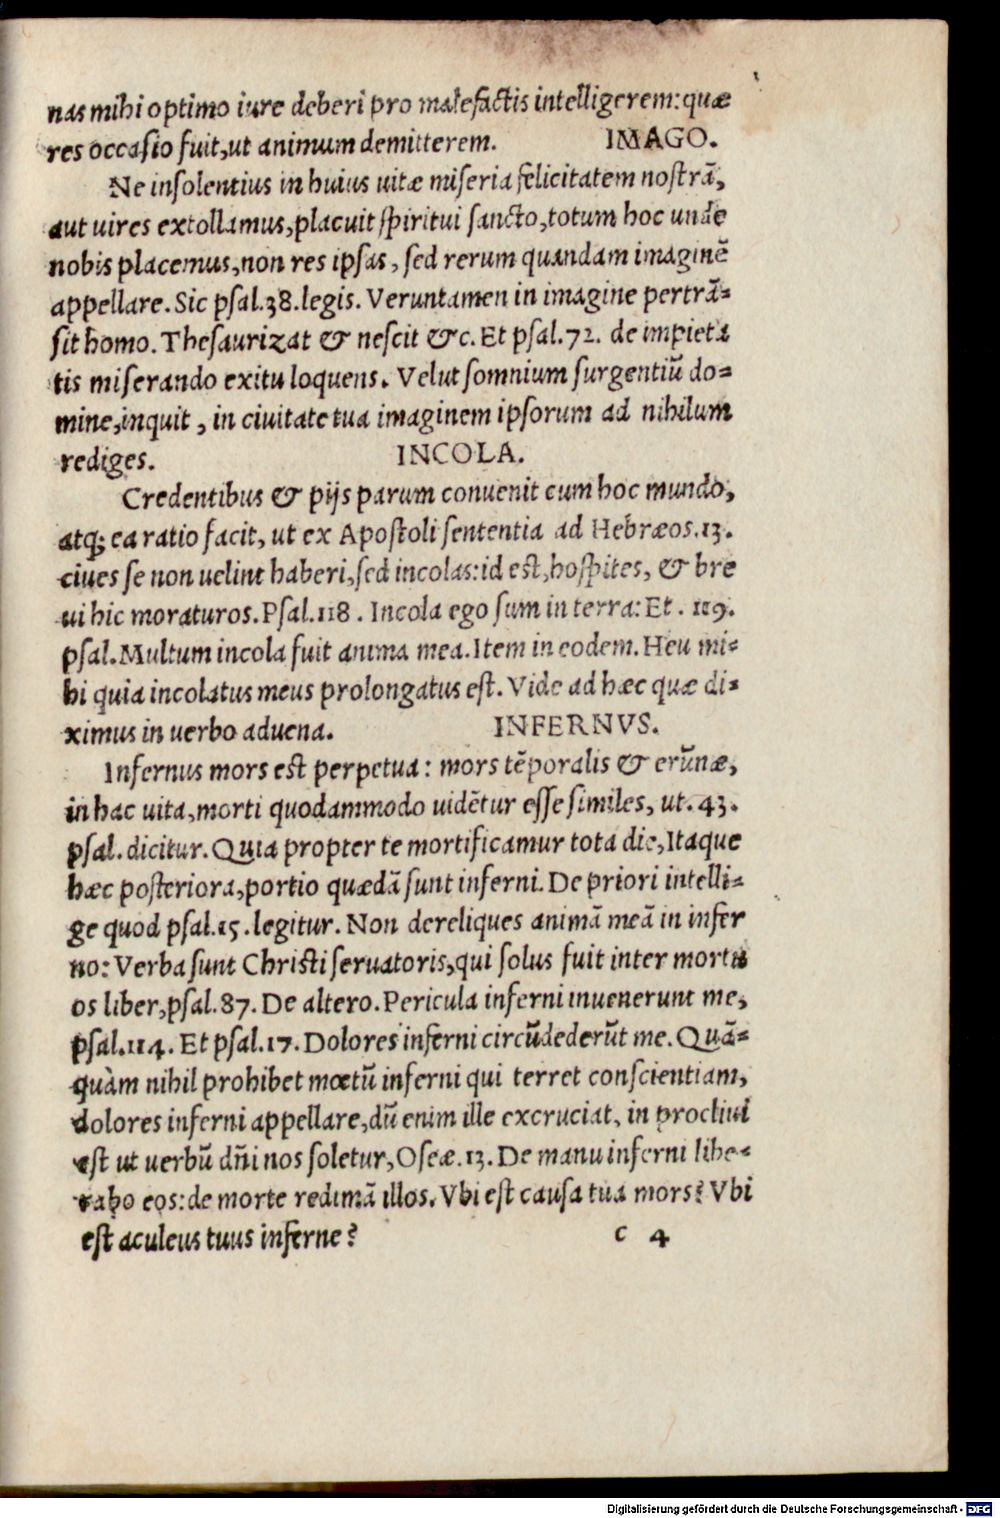 nas mihi optimo iure deberi pro malefactis intelligerem: quæ
res occasio fuit, ut animum demitterem. IMAGO.
Ne insolentius in huius uitæ miseria felicitatem nostrã,
aut uires extollamus, placuit spiritui sancto, totum hoc unde
nobis placemus, non res ipsas, sed rerum quandam imaginẽ
appellare. Sic psal. 38. legis. Veruntamen in imagine pertrã=
sit homo. Thesaurizat & nescit &c. Et psal. 72. de impieta
tis miserando exitu loquens. Velut somnium surgentiũ do=
mine, inquit, in ciuitate tua imaginem ipsorum ad nihilum
rediges. INCOLA.
Credentibus & pijs parum conuenit cum hoc mundo,
atq; ea ratio facit, ut ex Apostoli sententia ad Hebræos. 13.
ciues se non uelint haberi, sed incolas: id est, hospites, & bre
ui hic moraturos. Psal. 118. Incola ego sum in terra: Et. 119.
psal. Multum incola fuit anima mea. Item in eodem. Heu mi=
hi quia incolatus meus prolongatus est. Vide ad hæc quæ di=
ximus in uerbo aduena. INFERNVS.
Infernus mors est perpetua: mors tẽporalis & erũnæ,
in hac uita, morti quodammodo uidẽtur esse similes, ut. 43.
psal. dicitur. Quia propter te mortificamur tota die, Itaque
hæc posteriora, portio quædã sunt inferni. De priori intelli=
ge quod psal. 15. legitur. Non dereliques animã meã in infer
no: Verba sunt Christi seruatoris, qui solus fuit inter mortu
os liber, psal. 87. De altero. Pericula inferni inuenerunt me,
psal. 114. Et psal. 17. Dolores inferni circũdederũt me. Quã=
quàm nihil prohibet mœtũ inferni qui terret conscientiam,
dolores inferni appellare, dũ enim ille excruciat, in procliui
est ut uerbũ dñi nos soletur, Oseæ. 13. De manu inferni libe=
rabo eos: de morte redimã illos. Vbi est causa tua mors? Vbi
est aculeus tuus inferne? c 4
Digitalisierung gefördert durch die Deutsche Forschungsgemeinschaft - DFG